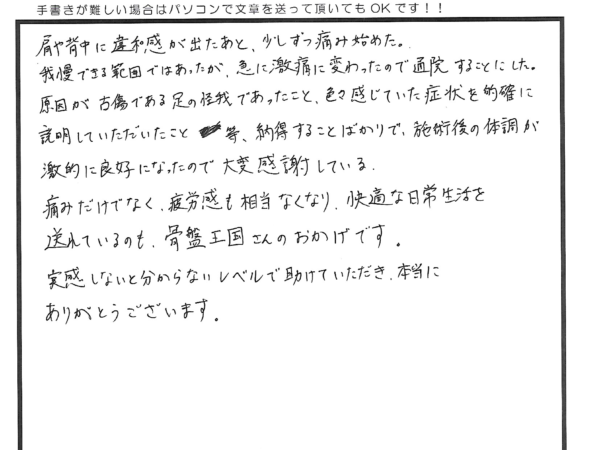 手書きが難しい場合はパソコンで文章を送って頂いてもOKです！！
肩や背中に違和感が出たあと、少しずつ痛み始めた。
我慢できる範囲ではあったが、急に激痛に変わったので通院することにした。
原因が古傷である足の怪我であったこと、色々感じていた症状を的確に
説明していただいたこと等、納得することばかりで、施術後の体調が
激的に良好になったので大変感謝している。
痛みだけでなく、疲労感も相当なくなり、快適な日常生活を
送れているのも、骨盤王国さんのおかげです。
実感しないと分からないレベルで助けていただき、本当に
ありがとうございます。